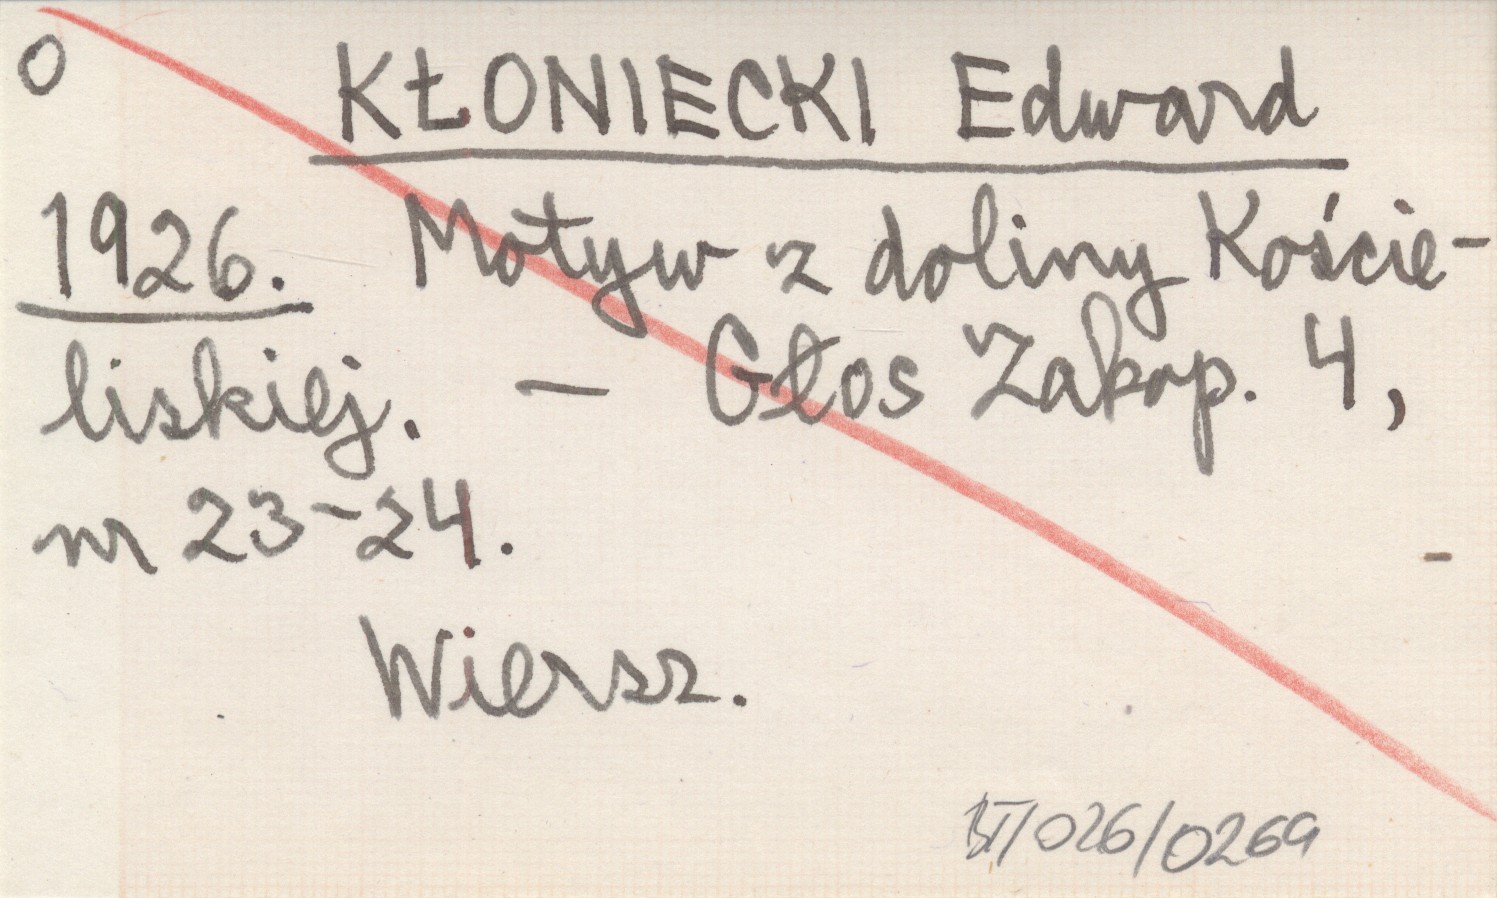 O KŁONIECKI Edward
1926. Motyw z doliny Koście-
liskiej. — Głos Zakop. 4,
nr 23-24.
Wiersz.
BT/026/0269